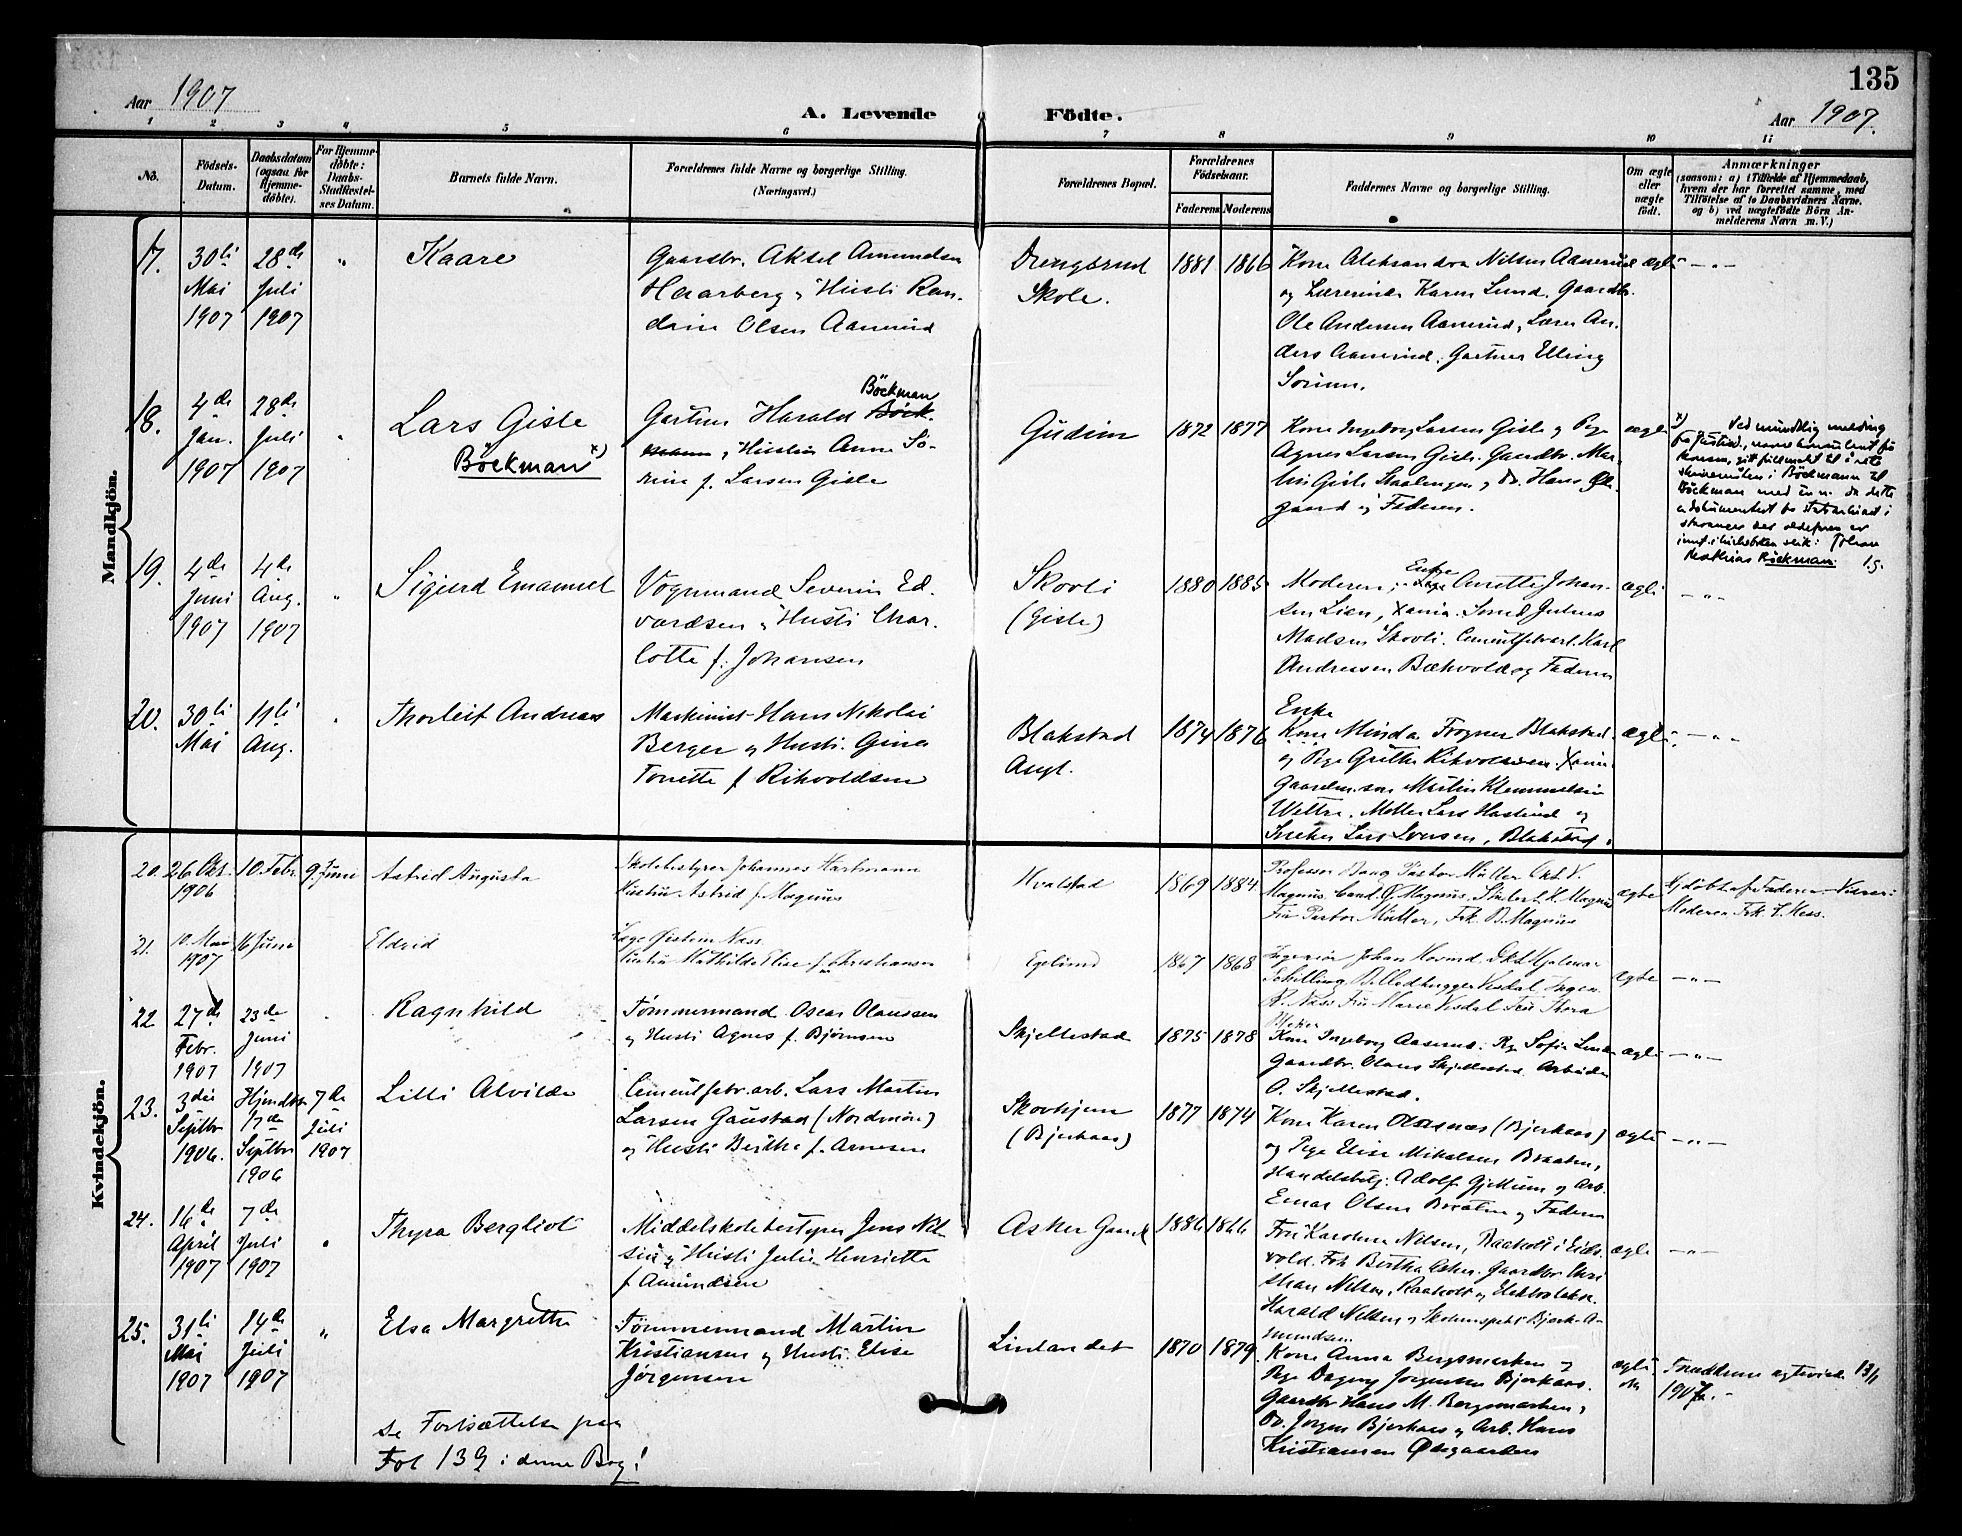 135
Aar 1907
A. Levende Födte.
Aar 1907.
1 2 3 4 5 6 7 8 9 10 11
No.
Födsels-
Datum.
Daabsdatum
(ogsaa for
Hjemme-
døbte).
For Hjemme-
døbte:
Daabs-
Stadfæstel-
ses Datum.
Barnets fulde Navn.
Forældrenes fulde Navne og borgerlige Stilling.
(Næringsvei.)
Forældrenes Bopæl.
Forældrenes
Födselsaar.
Faderens Moderens
Faddernes Navne og borgerlige Stilling.
Om ægte
eller
uægte
født.
Anmærkninger
(saasom: a) i Tilfælde af Hjemmedaab,
hvem der har forrettet samme, med
Tilföielse af to Daabsvidners Navne.
og b) ved uægtefödte Börn An-
melderens Navn m. V.)
Mandkjön.
17.
30ti
Mai
1907
28de
Juli
1907
"
Kaare
Gaardbr. Aksel Amundsen
Haarberg og Hustru Ran-
dine Olsen Aanerud
Drengsrud
Skole.
1881 1866
Kone Aleksandra Nilsen Aanerud
og Lærerinde Karen Lund. Gaardbr.
Ole Andersen Aanerud, Lærer An-
ders Aanerud, Gartner Elling
Sørum.
ægte
— „ —
18.
4de
Jan.
1907
28de
Juli
1907
Lars Gisle
Böckman x)
Gartner Harald Böckman
og Hustru Anne So-
rine f. Larsen Gisle
Gudim
1872 1877
Kone Ingeborg Larsen Gisle og Pige
Agnes Larsen Gisle. Gaardbr. Mar-
Gisle og Do. Hans
gaard og Faderen.
ægte
x) Ved mundtlig melding
Böckmann til
Böckman
Johan
Mathias Böckman.
19.
4de
Juni
1907
4de
Aug.
1907
"
Sigurd Emanuel
Vognmand Severin Ed-
vardsen og Hustru Char-
lotte f. Johansen
Skovli
(Gisle)
1880 1885
Moderen, Enke Anette Johan-
sen Lien, Xania. Smed Julius
Madsen Skovli. Cementfabrarb. Karl
Andresen Bækvold og Faderen
ægte
— „ —
20.
30ti
Mai
11ti
Aug.
Thorleif Andreas
Maskinist Hans Nikolai
Berger og Hustru Gina
Tonette f. Rikvoldsen
Blakstad
Asyl.
1874 1876
Enke
Kone Minda Frogner Blakstad
og Pige Grethe Rikvoldsen Xania
Gaardm.søn Martin Klemmetsen
Wettre. Møller Lars og
Snekker Lars Iversen, Blakstad.
ægte
— „ —
Kvindekjön.
20.
26 Okt.
1906
10 Febr.
9 Juni
Astrid Augusta
Skolebestyrer Johannes Hartmann
Hustru Astrid f. Magnus
Hvalstad
1869 1884
Professor Bang Pastor Müller
Magnus Cand. O. Magnus, Student H. Magnus
Fru Pastor Müller, Frk. B. Magnus
ægte
Hjdøbt af Faderen
Moderen Frk.
21.
10. Mai
1907
16 Juni
Eldrid
Læge Øistein Næss
Hustru Mathilde Elise f. Christiansen
Egelund
1867 1868
Ingeniør Johan Dr. Hjalmar
Schilling, Billedhugger Visdal, Ingen.
Næss Fru Marie Visdal Fru Thora
ægte
— „ —
22
27de
Febr.
1907
23de
Juni
1907
Ragnhild
Tømmermand Oscar Olaussen
og Hustru Agnes f. Bjørnsen
Skjellestad
1875 1878
Kone Ingeborg Aaserud. Pige Sofie
Gaardbr. Olaus Skjellestad. Arbeider
O. Skjellestad.
ægte
— „ —
23.
3die
Septbr
1906.
Hjemdbt
17de
Septbr
1906
7de
Juli
1907
Lilli Alvilde
Cementfabr.arb. Lars Martin
Larsen Gaustad (Nordmøre)
og Hustru Berthe f. Arnesen
Skovhjem
(Bjerkaas)
1877 1874
Kone Karen (Bjerkaas)
og Pige Elise Mikalsen Braaten,
Handelsbetj. Adolf Gjellum og Arb.
Einar Olsen Braaten og Faderen
ægte
— „ —
24.
16de
April
1907
7de
Juli
1907
Thyra Bergliot
Middelskolebestyrer Jens Nil-
sen og Hustru Julie Henriette
f. Amundsen
Asker Gaard
1886 1866
Fru Karoline Nilsen, Raaholt i Eids-
vold. Frk Bertha Asker. Gaardbr Chri-
stian Nilsen, Raaholt og
Harald Nilsen og A-
mundsen.
ægte
— „ —
25.
31ti
Mai
1907
14de
Juli
1907
"
Elsa Margrethe
Tømmermand Martin
Kristiansen og Hustru Elise
Jørgensen
Linlandet
1870 1879
Kone Anna Bergsmarken og
Pige Dagny Jørgensen Bjerkaas.
Gaardbr Hans M. Bergsmarken,
Do. Jørgen Bjerkaas og Arb. Hans
Kristiansen Ødegaarden
ægte
Forældrene ægteviede 13/1
1907.-
Se Fortsættelse paa
Fol 139 i denne Bog!